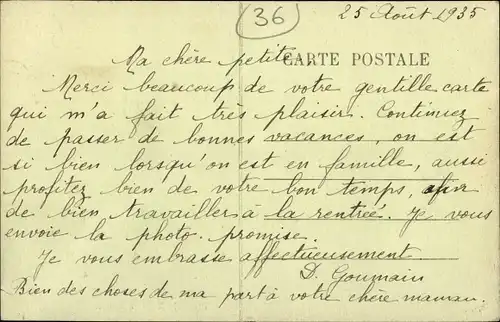 36
25 Août 1935
CARTE POSTALE
Ma chère petite
Merci beaucoup de votre gentille carte
qui m'a fait très plaisir. Continuez
de passer de bonnes vacances, on est
si bien lorsqu'on est en famille, aussi
profitez bien de votre bon temps, afin
de bien travailler à la rentrée. Je vous
envoie la photo. promise.
Je vous embrasse affectueusement.
D. Goumain
Bien des choses de ma part à votre chère maman.